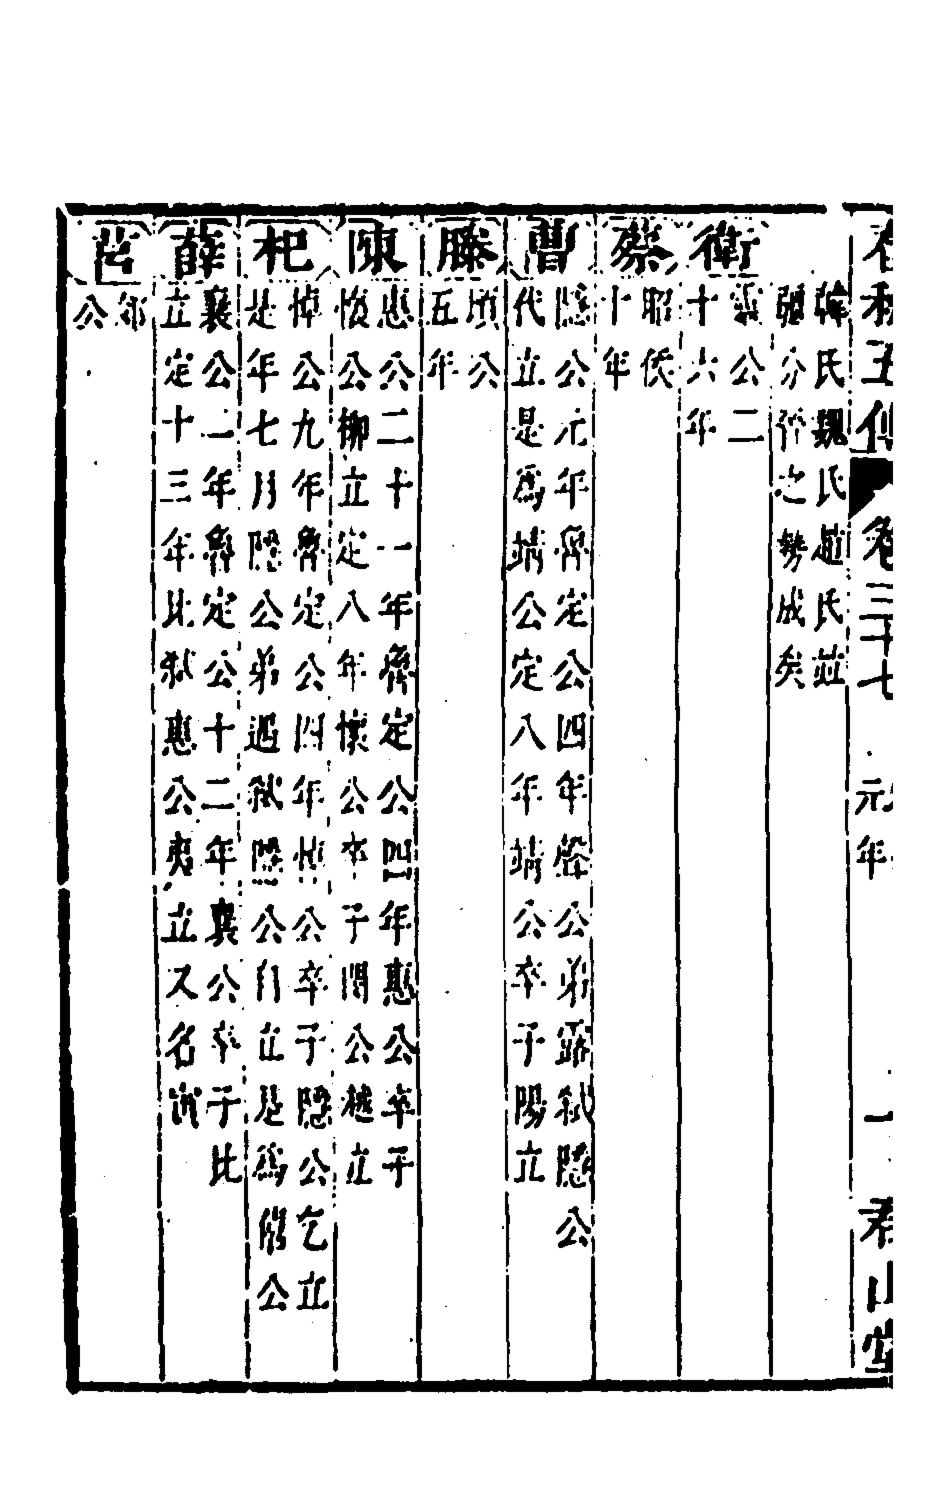 春秋五傳 卷三十七 元年 一 君山堂
韓氏魏氏趙氏並
彊分晉之勢成矣
衛
靈公二
十六年
蔡
昭侯
十年
曹
隱公元年魯定公四年聲公弟露弒隱公
代立是爲靖公定八年靖公卒子陽立
滕
頃公
五年
陳
惠公二十一年魯定公四年惠公卒子
懷公柳立定八年懷公卒子閔公越立
杞
悼公九年魯定公四年悼公卒子隱公乞立
是年七月隱公弟遇弒隱公自立是爲僖公
薛
襄公二年魯定公十二年襄公卒子比
立定十三年比弒惠公夷立又名寅
莒
郊
公